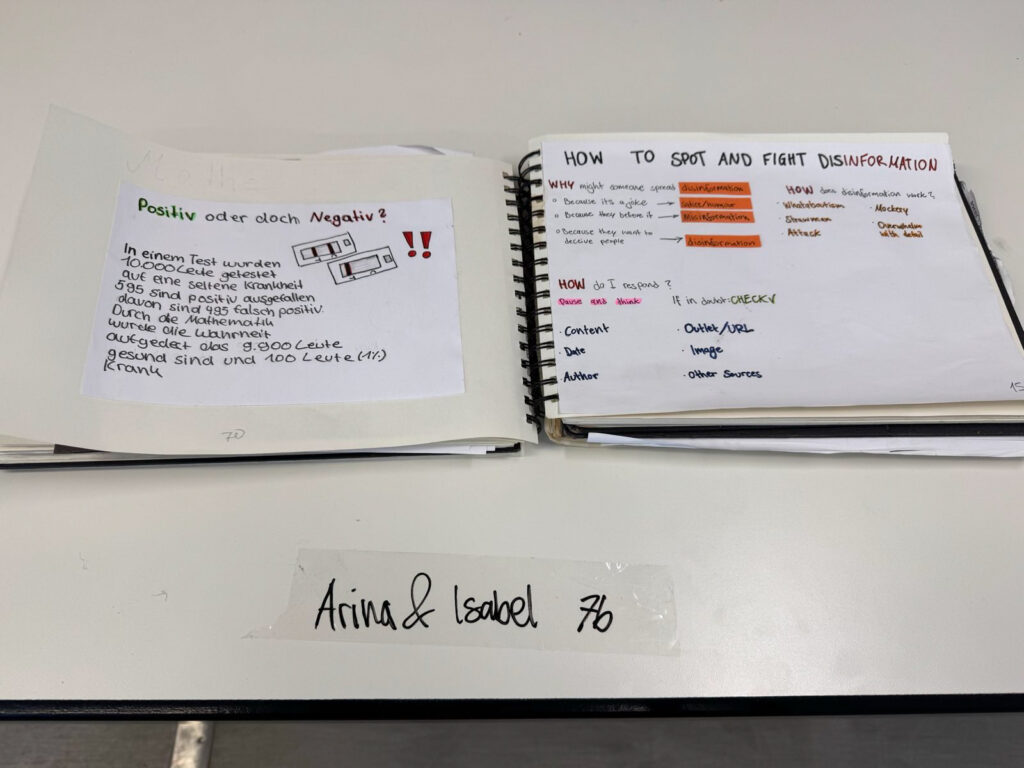 Mathe
Positiv oder doch Negativ?
!!
In einem Test wurden
10.000 Leute getestet
auf eine seltene Krankheit
595 sind positiv ausgefallen
davon sind 495 falsch positiv.
Durch die Mathematik
wurde die Wahrheit
aufgedeckt das 9.900 Leute
gesund sind und 100 Leute (1%)
Krank
HOW TO SPOT AND FIGHT DISINFORMATION
WHY might someone spread disinformation
Because its a joke → satire/humour
Because they believe it → Misinformation
Because they want to
deceive people → disinformation
HOW does disinformation work?
Whataboutism
Strawman
Attack
Mockery
Overwhelm
with detail
HOW do I respond?
Pause and think
If in doubt: CHECK✓
Content
Date
Author
Outlet/URL
Image
Other Sources
15
Arina & Isabel 7b